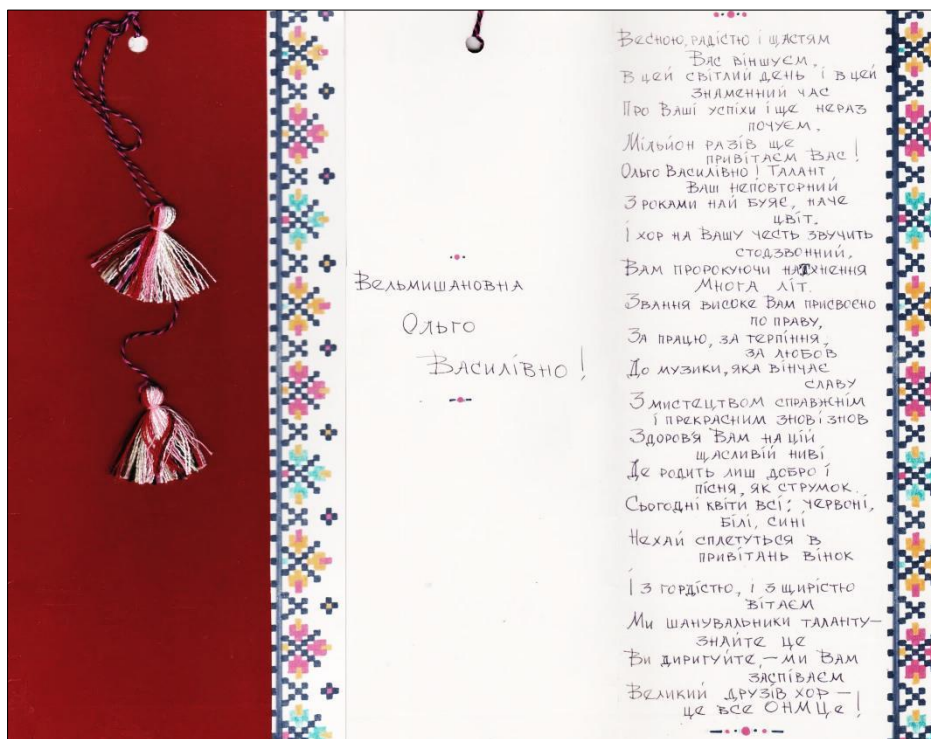 Вельмишановна
Ольго
Василівно!
Весною, радістю і щастям
Вас віншуєм.
В цей світлий день і в цей
знаменний час
Про Ваші успіхи і ще нераз
почуєм,
Мільйон разів ще
привітаєм Вас!
Ольго Василівно! Талант
Ваш неповторний
З роками най буяє, наче
цвіт.
І хор на Вашу честь звучить
стодзвонний,
Вам пророкуючи натхнення
Многа літ.
Звання високе Вам присвоєно
по праву,
За працю, за терпіння,
за любов
До музики, яка вінчає
славу
З мистецтвом справжнім
і прекрасним знов і знов
Здоров'я Вам на цій
щасливій ниві
Де родить лиш добро і
пісня, як струмок.
Сьогодні квіти всі: червоні,
білі, сині
Нехай сплетуться в
привітань вінок
І з гордістю, і з щирістю
вітаєм
Ми шанувальники таланту –
знайте це
Ви диригуйте, – ми Вам
заспіваєм
Великий друзів хор –
це все ОНМЦе!